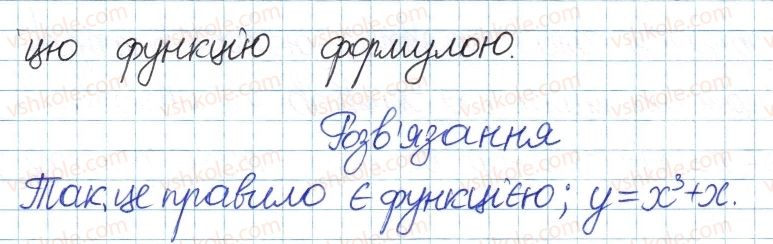 цю функцію формулою.
Розв'язання
Так, це правило є функцією; y = x³ + x.